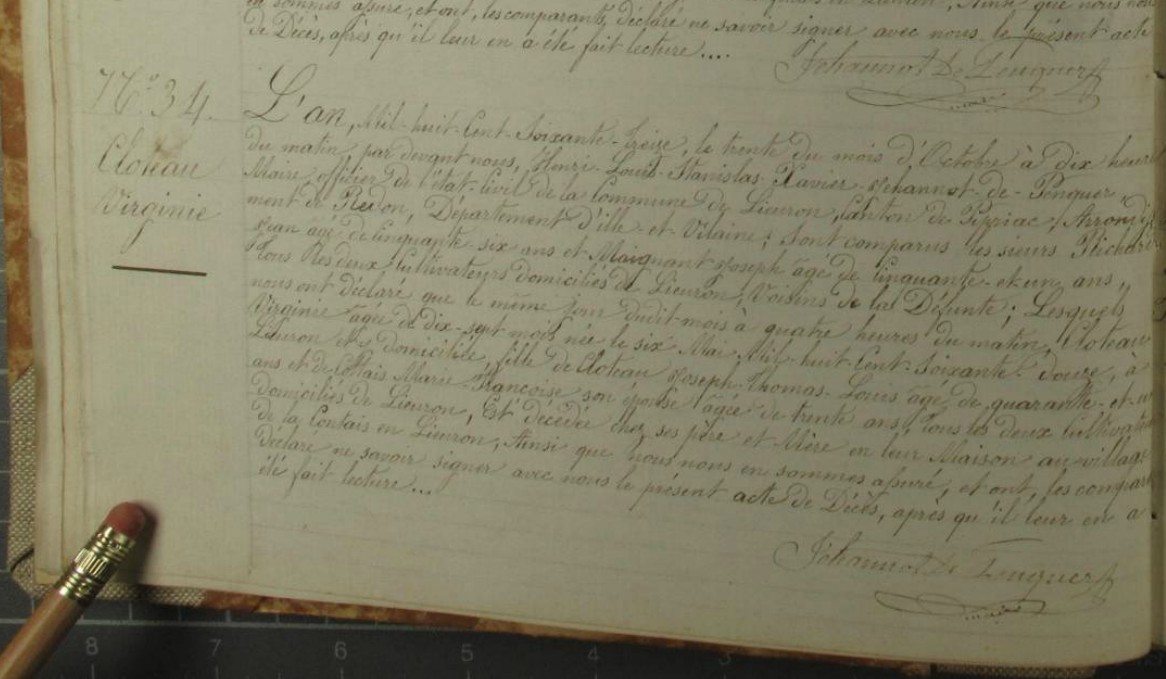 en sommes assuré, et ont, les comparants, Déclaré ne savoir signer avec nous le présent acte
de Décès, après qu'il leur en a été fait lecture....
Jehannot De Penquer
N.o 34.
Cloteau
Virginie
L'an, Mil-huit-Cent-Soixante-Treize, le trente du mois d'Octobre à dix heures
du matin par devant nous, Henri-Louis-Stanislas-Xavier-Jehannot-de-Penquer
Maire, officier de l'état-civil de la commune de Lieuron, Canton de Pipriac, Arrondis
ment de Redon, Département D'ille-et-Vilaine; Sont comparus les sieurs Richard
Jean âgé de Cinquante-six ans et Maignant Joseph âgé de Cinquante-et-un ans,
Tous les deux, Cultivateurs domiciliés de Lieuron, Voisins de la Défunte; Lesquels
nous ont déclaré que le même jour dudit-mois à quatre heures du matin, Cloteau
Virginie âgée de dix-sept-mois née le six Mai Mil-huit-Cent-Soixante-Douze, à
Lieuron et y domiciliée, fille de Cloteau Joseph-Thomas-Louis âgé de quarante-et-un
ans et de Marie-Françoise son épouse âgée de trente ans, Tous les deux Cultivate
domiciliés de Lieuron, Est décédée chez ses père et Mère en leur Maison au village
de la Contais en Lieuron, Ainsi que nous nous en sommes assuré, et ont, les compar
déclaré ne savoir signer avec nous le présent acte de Décès, après qu'il leur en a
été fait lecture...
Jehannot De Penquer
8 7 6 5 4 3